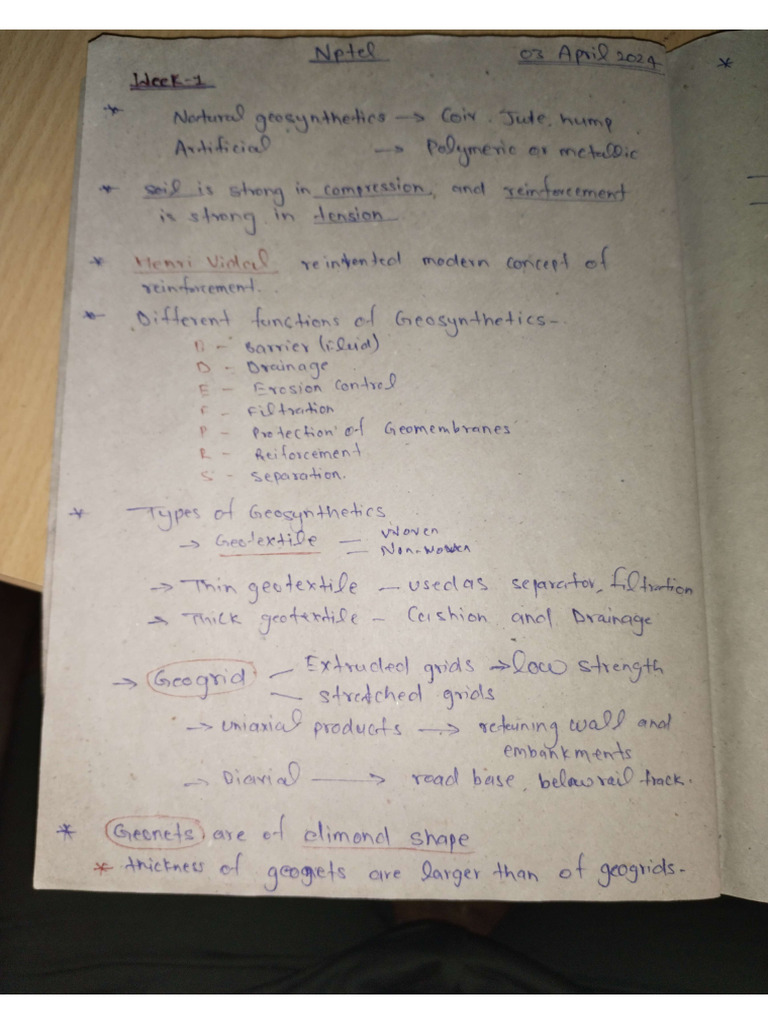 Nptel 03 April 2024
Week-1
* Natural geosynthetics → Coir, Jute, hump
Artificial → Polymeric or metallic
* soil is strong in compression, and reinforcement
is strong in tension
* Henri Vidal reintented modern concept of
reinforcement.
* Different functions of Geosynthetics-.
B - Barrier (fluid)
D - Drainage
E - Erosion control
F - Filtration
P - Protection of Geomembranes
R - Reiforcement
S - Separation.
* Types of Geosynthetics
→ Geotextile — Woven
— Non-woven
→ Thin geotextile - used as separator, filtration
→ Thick geotextile - Cushion and Drainage
→ Geogrid — Extruded grids → low strength
— stretched grids
→ uniaxial products → retaining wall and
embankments
→ Biaxial → road base, below rail track.
* Geonets are of dimond shape
* thickness of geognets are larger than of geogrids-
*